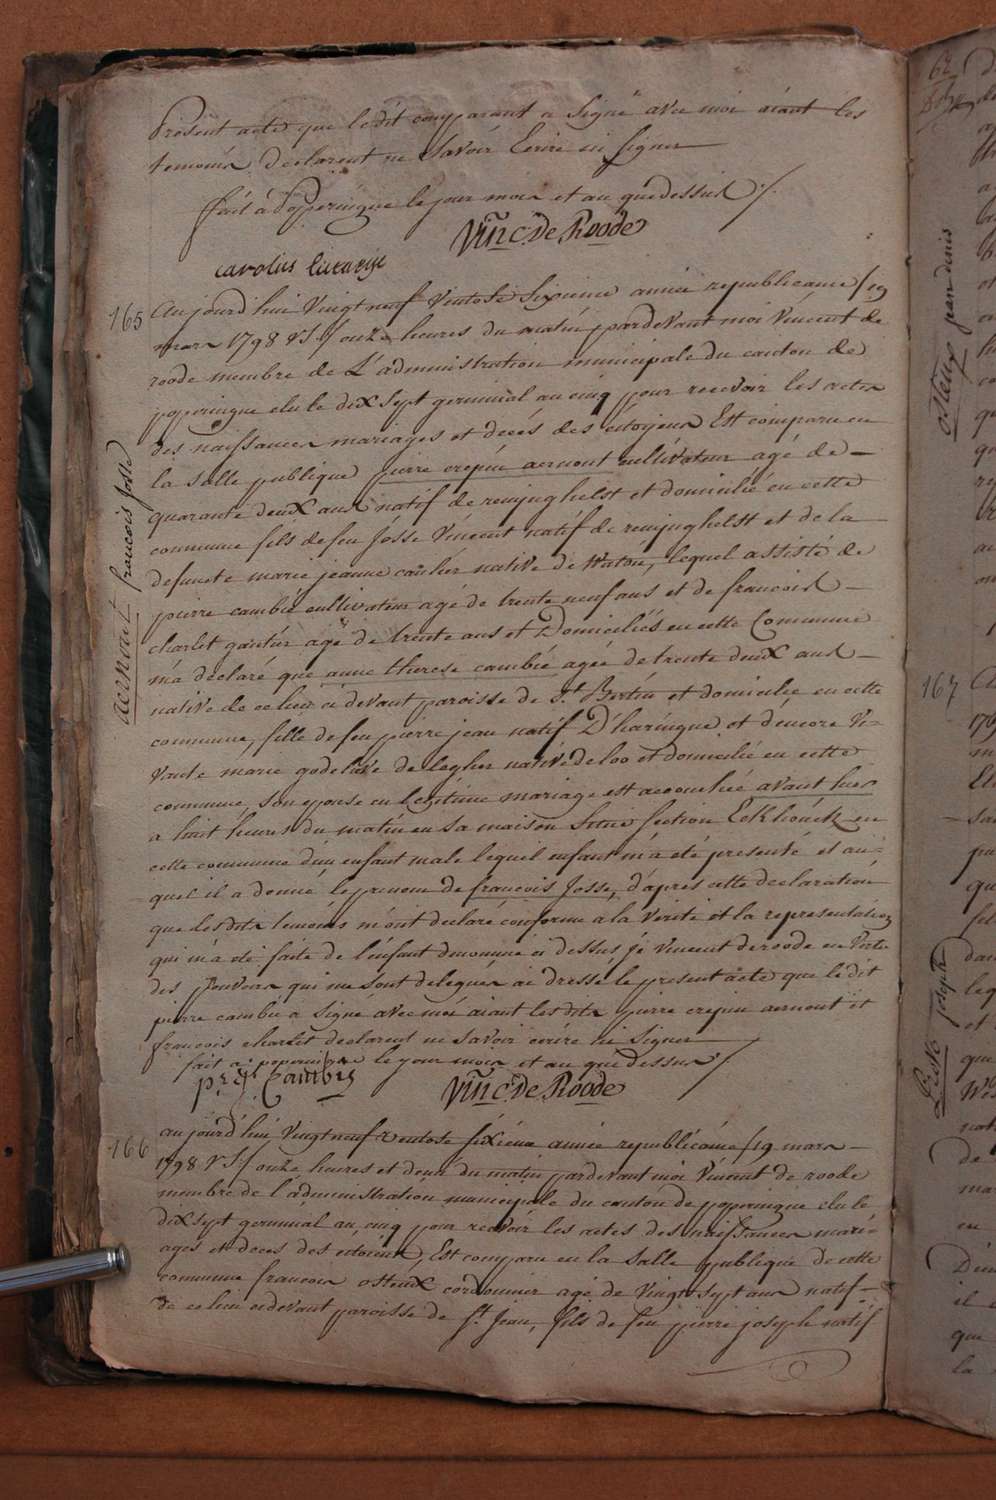 Présent acte que le dit comparant a Signé avec moi aiant les
temoins declarent ne Savoir Ecrire ni Signer
fait à Poperingue le jour mois et an que dessus
Vinc. De Roode
carolus
165
Aujourd'hui Vingt neuf Ventose Sixieme année republicaine /19
mars 1798 VS/ onze heures du matin pardevant moi Vincent de
roode membre de L'administration municipale du canton de
poperingue elu le dix sept germinal an cinq pour recevoir les actes
des naissances mariages et décés des citoyens Est comparu en
la Salle publique pierre crepin aernout cultivateur agé de
quarante deux ans natif de reninghelst et domicilié en cette
commune fils de feu Josse Vincent natif de reninghelst et de la
defuncte marie jeanne caulier native de Watou, lequel assisté de
pierre cambie cultivateur agé de trente neuf ans et de francois
charlet agé de trente ans et Domiciliés en cette Commune
m'a declaré que anne therese cambie agée de trente deux ans
native de ce lieu ci devant paroisse de St. Bertin et domiciliée en cette
commune, fille de feu pierre jean natif D'haringue et d'encore vi-
vante marie godelive de legher native de loo et domiciliée en cette
commune, son epouse en legitime mariage est accouchée avant hier
a huit heures du matin en sa maison Situé section Eekhouck en
cette commune d'un enfant male lequel enfant m'a eté presenté et au-
quel il a donné le prenom de francois Josse, d'après cette declaration
que les dits temoins m'ont declaré conforme a la Verité et la representation
qui m'a eté faite de l'enfant denommé ci dessus, je Vincent deroode en Vertu
des pouvoirs qui me sont delegués ai dressé le present acte que le dit
pierre cambie a Signé avec moi aiant les dits pierre crepin aernout et
francois charlet declarent ne Savoir ecrire ni Signer
fait a poperingue le jour mois et an que dessus
Cambie
Vinc. De Roode
aernout francois Josse
166
aujourd'hui Vingt neuf Ventose sixieme année republicaine /19 mars
1798 VS/ onze heures et demi du matin pardevant moi Vincent de roode
membre de l'administration municipale du canton de poperingue elu le
dix sept germinal an cinq pour recevoir les actes des naissances mari-
ages et deces des citoiens, Est comparu en la Salle publique de cette
commune francois osteux cordonnier agé de Vingt sept ans natif
de ce lieu cidevant paroisse de St. Jean, fils de feu pierre joseph natif
62
osteux jean denis
167
joseph